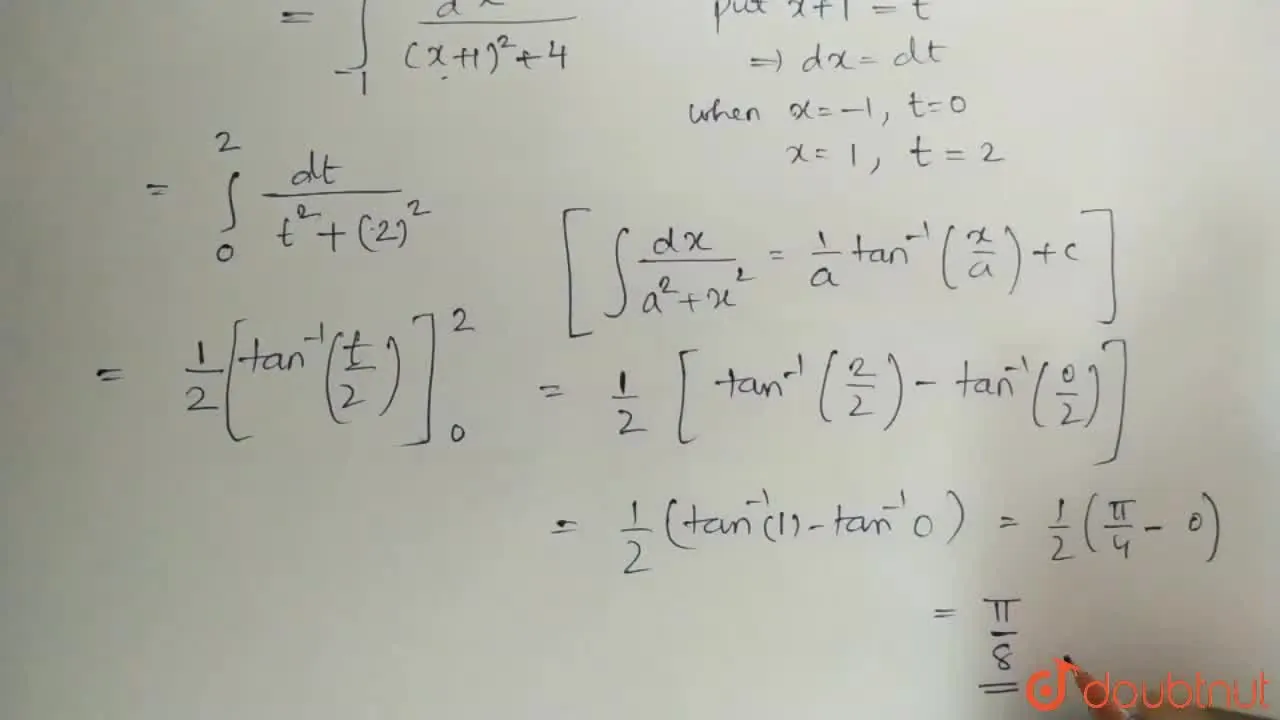 = ∫₋₁ dx / ((x+1)² + 4) put x+1 = t
⇒ dx = dt
when x = -1, t = 0
x = 1, t = 2
= ∫₀² dt / (t² + (2)²)
[ ∫ dx / (a² + x²) = 1/a tan⁻¹ (x/a) + c ]
= 1/2 [ tan⁻¹ (t/2) ]₀² = 1/2 [ tan⁻¹ (2/2) - tan⁻¹ (0/2) ]
= 1/2 (tan⁻¹(1) - tan⁻¹ 0) = 1/2 (π/4 - 0)
= π/8
doubtnut